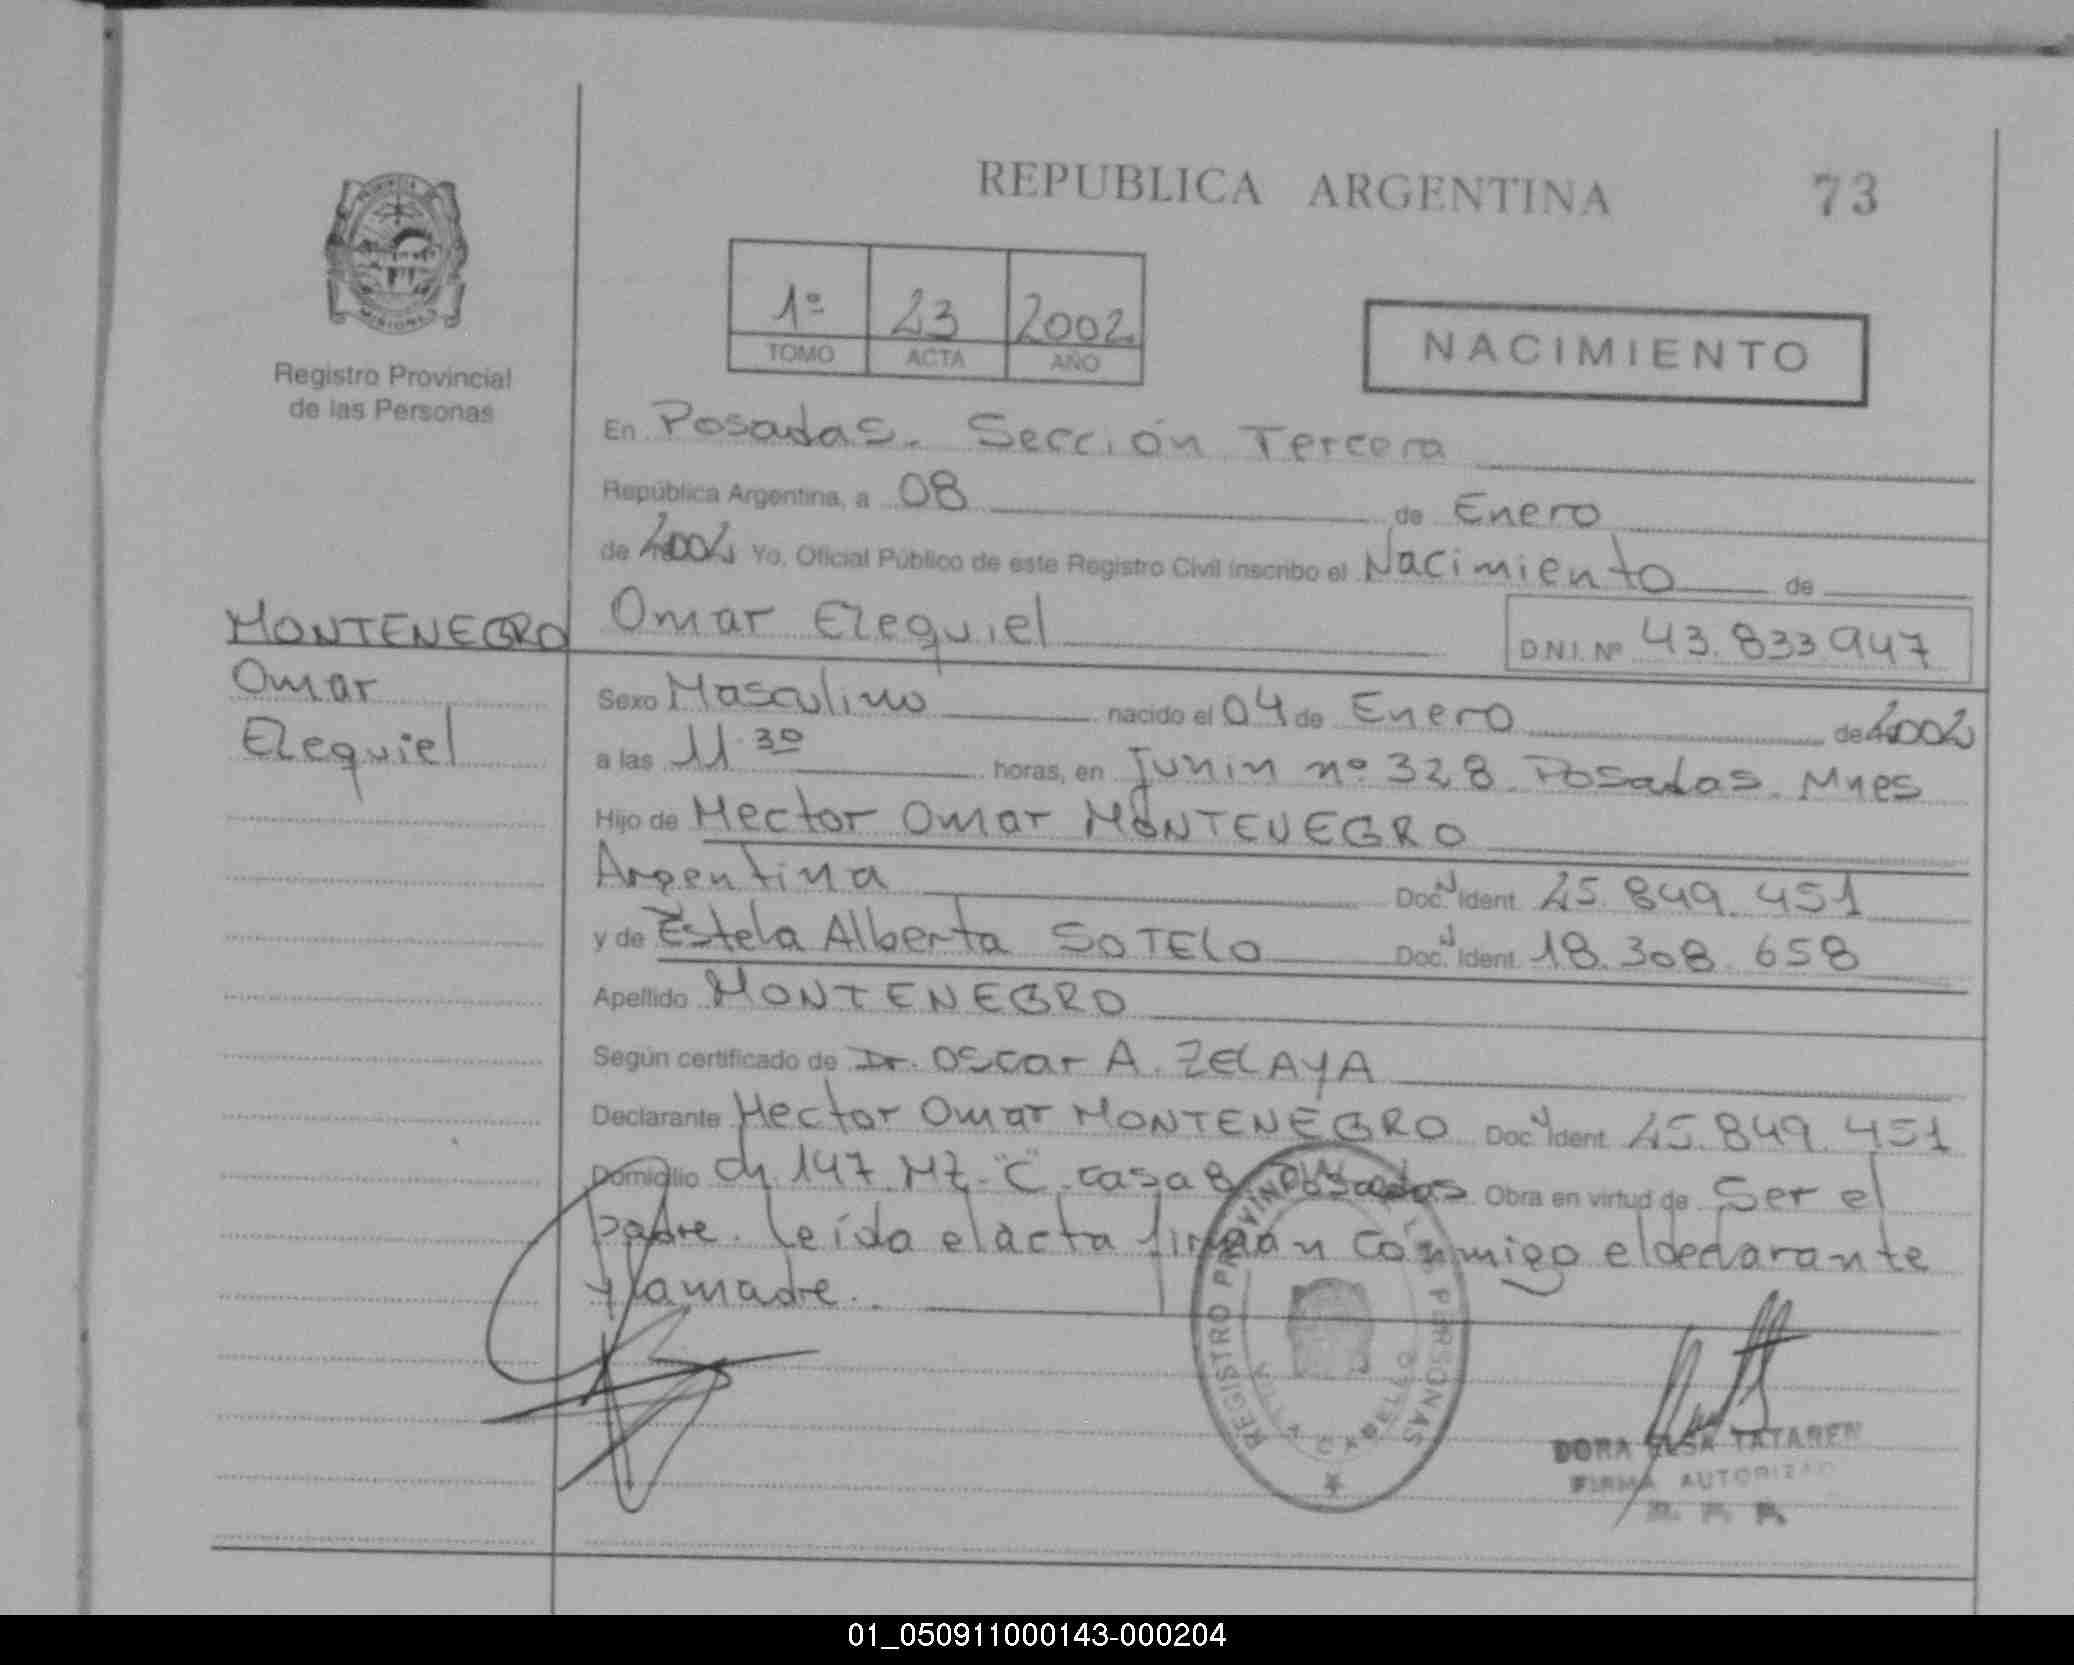 REPUBLICA ARGENTINA
73
1º 23 2002
TOMO ACTA AÑO
NACIMIENTO
MISIONES
Registro Provincial
de las Personas
En Posadas. Sección Tercera
República Argentina, a 08 de Enero
de 2002 Yo, Oficial Público de este Registro Civil inscribo el Nacimiento de
Omar Ezequiel D.N.I. Nº 43.833.947
MONTENEGRO
Omar
Ezequiel
Sexo Masculino nacido el 04 de Enero de 2002
a las 11.30 horas, en Junin nº 328. Posadas. Mnes
Hijo de Hector Omar MONTENEGRO
Argentina Doc. Ident. 25.849.451
y de Estela Alberta SOTELO Doc. Ident. 18.308.658
Apellido MONTENEGRO
Según certificado de Dr. Oscar A. ZELAYA
Declarante Hector Omar MONTENEGRO Doc. Ident. 25.849.451
Domicilio ch 147 Mz. "C" casa 8 Posadas Obra en virtud de Ser el
padre. Leída el acta firman conmigo el declarante
y la madre.
REGISTRO PROVINCIAL PERSONAS
CABELLO
DORA ELSA
FIRMA AUTORIZAD
01_050911000143-000204